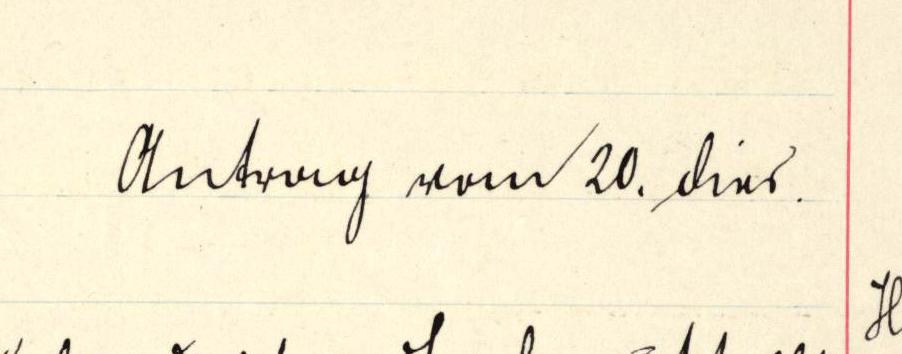 Antrag vom 20. dies.
H